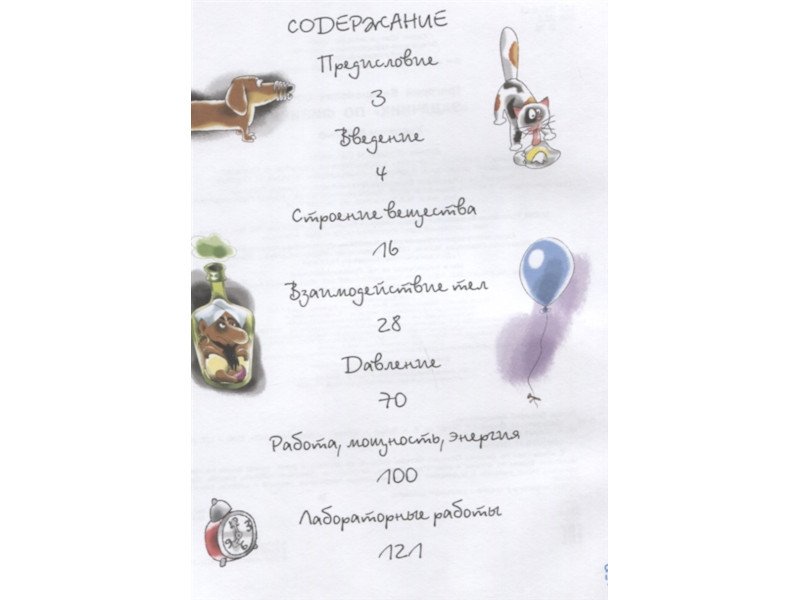 СОДЕРЖАНИЕ
Предисловие
3
Введение
4
Строение вещества
16
Взаимодействие тел
28
Давление
70
Работа, мощность, энергия
100
Лабораторные работы
121